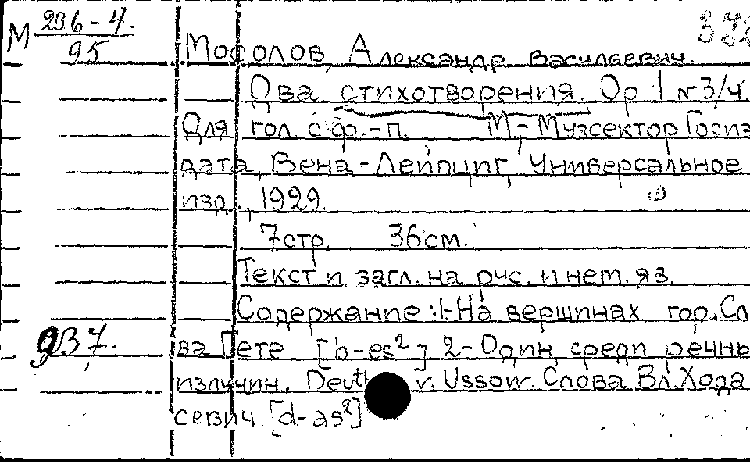 М 236-4. 95
Мосолов, Александр Васильевич.
Два стихотворения. Op 1 №3/4
Для гол. с ф.-п. М.- Музсектор Госиз
дата, Вена-Лейпциг, Универсальное
изд., 1929.
7 стр. 36 см.
Текст и загл. на рус. и нем. яз.
Содержание: 1-На вершинах гор. Сл
937. ва Гете [b-es²] 2-Один, среди речны
излучин. Deut v. Ussow. Слова Вл. Хода
севич [d-as²]